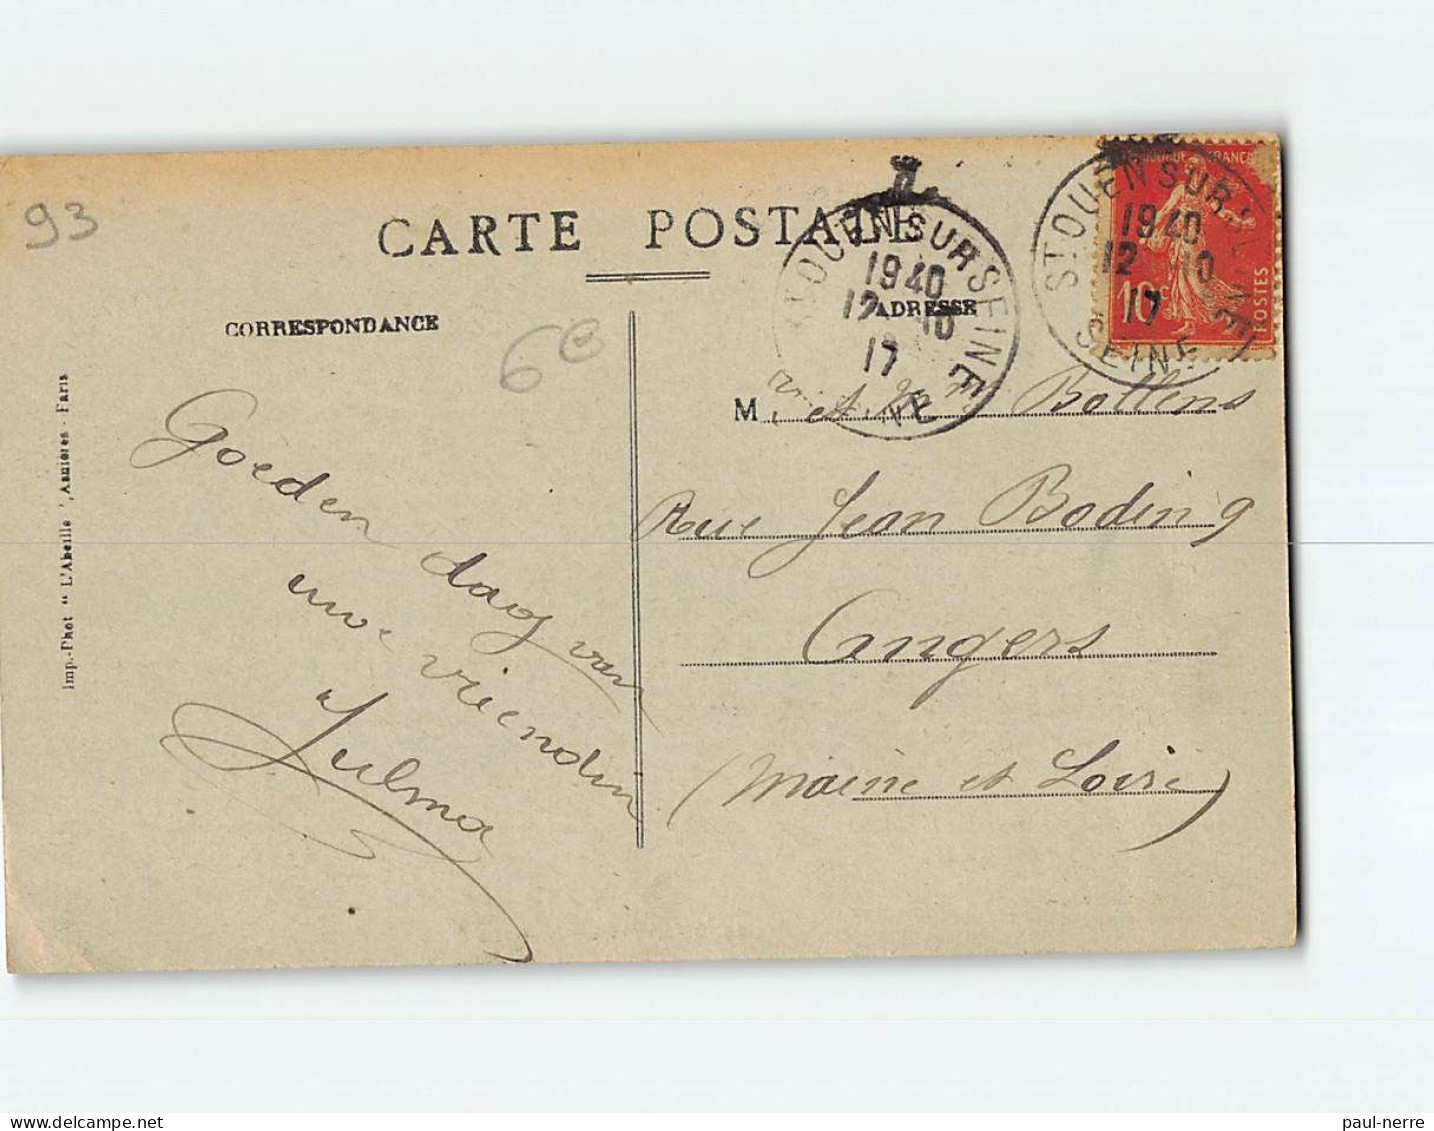 93
CARTE POSTALE
CORRESPONDANCE
ADRESSE
6e
Goeden dag van
uwe vriendin
Julma
Imp.-Phot " L'Abeille ", Asnières - Paris
ST OUEN SUR SEINE
1940
12 10
17
SEINE
ST OUEN SUR SEINE
1940
12 10
17
SEINE
10c
POSTES
M. et Mme Bollens
Rue Jean Boding
Angers
(Maine et Loire)
paul-nerre